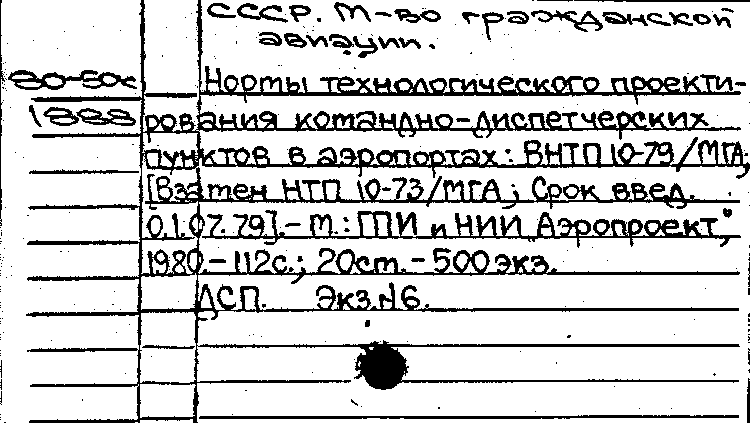 СССР. М-во гражданской
авиации.
80-50с Нормы технологического проекти-
1888 рования командно-диспетчерских
пунктов в аэропортах: ВНТП 10-79/МГА;
[Взамен НТП 10-73/МГА; Срок введ.
01.07.79].- М.: ГПИ и НИИ "Аэропроект",
1980.- 112с.; 20см. - 500 экз.
ДСП. Экз.№6.